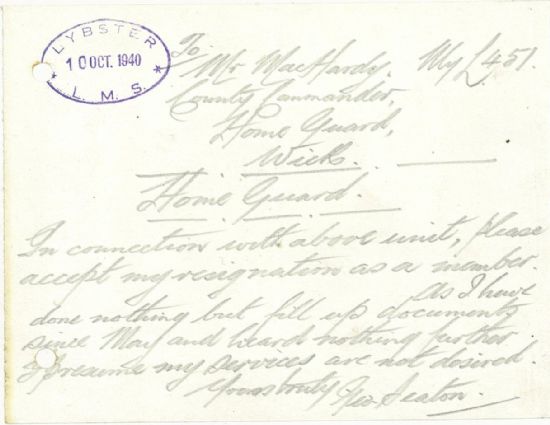 LYBSTER
10 OCT. 1940
* L. M. S. *
To My L451.
Mr. MacHardy.
County Commander,
Home Guard,
Wick.
Home Guard.
In connection with above unit, please
accept my resignation as a member.
As I have
done nothing but fill up documents
since May and heard nothing further
I presume my services are not desired.
Yours truly Geo. Seaton.